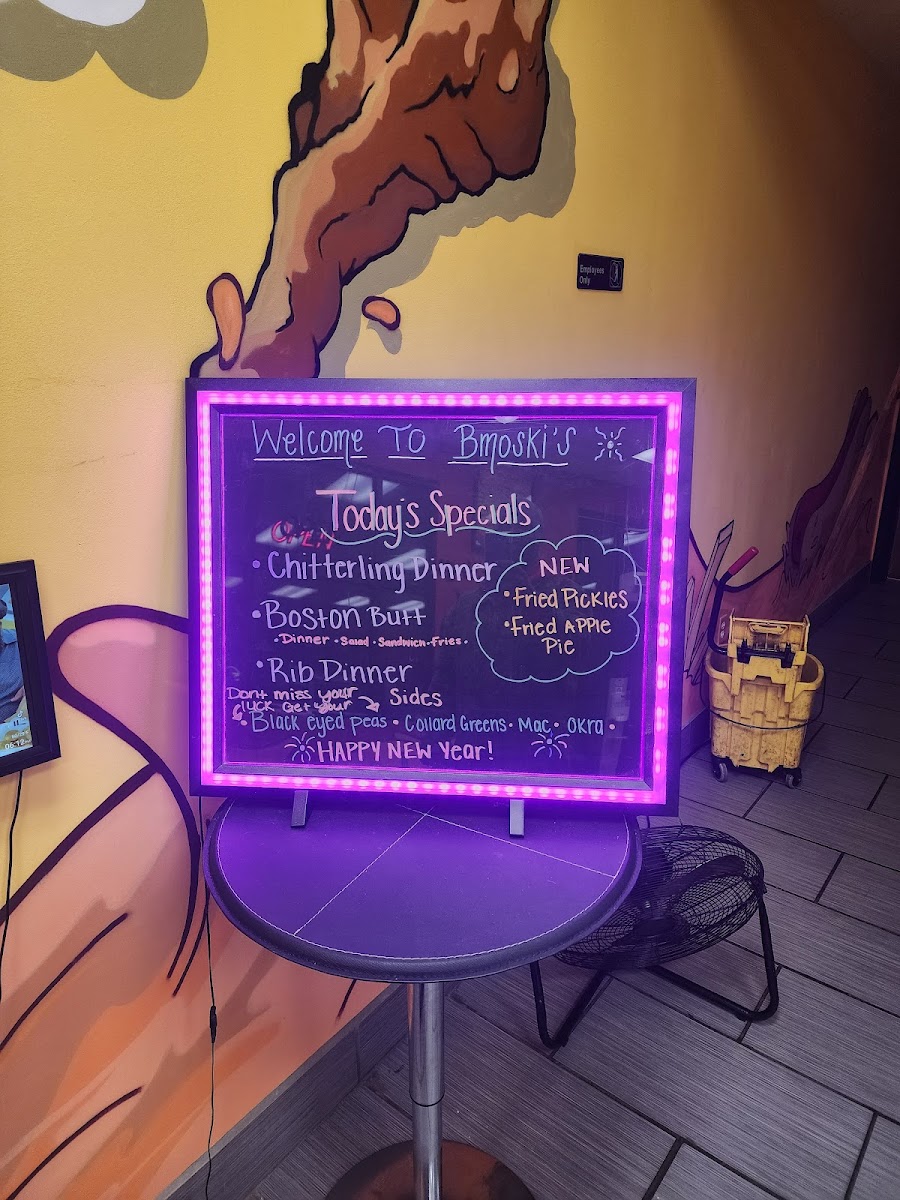 Employees
Only
Welcome TO Bmoski's
Today's Specials
OPEN
• Chitterling Dinner
NEW
• Fried Pickles
• Fried Apple
Pie
• Boston Butt
• Dinner • Salad • Sandwich • Fries •
• Rib Dinner
Dont miss your
luck Get your
Sides
• Black eyed peas • Collard Greens • Mac • Okra •
HAPPY NEW Year!
06:12